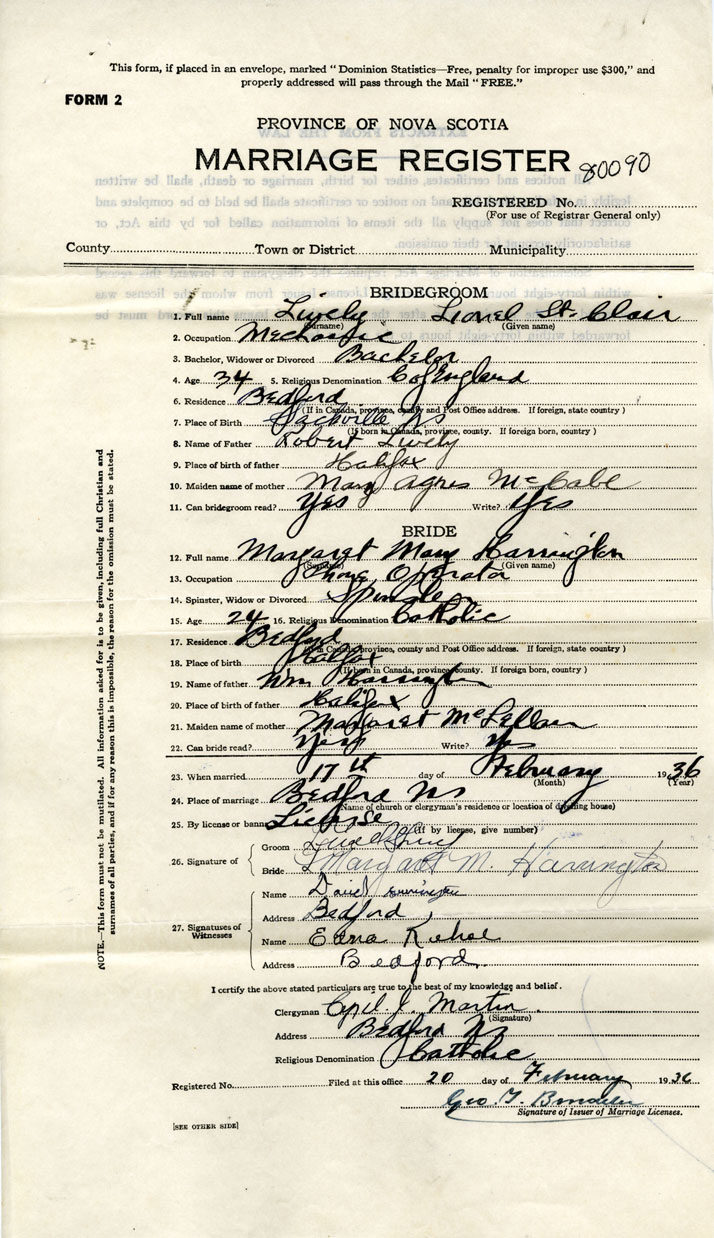 This form, if placed in an envelope, marked “ Dominion Statistics—Free, penalty for improper use $300,” and
properly addressed will pass through the Mail “ FREE.”
FORM 2
PROVINCE OF NOVA SCOTIA
MARRIAGE REGISTER 80090
REGISTERED No.
(For use of Registrar General only)
County Town or District Municipality
BRIDEGROOM
1. Full name Lively Lionel St. Clair
(Surname) (Given name)
2. Occupation Mechanic
3. Bachelor, Widower or Divorced Bachelor
4. Age 34 5. Religious Denomination C of England
6. Residence Bedford
(If in Canada, province, county and Post Office address. If foreign, state country )
7. Place of Birth Sackville NS
(If born in Canada, province, county. If foreign born, country )
8. Name of Father Robert Lively
9. Place of birth of father Halifax
10. Maiden name of mother Mary Agnes McCabe
11. Can bridegroom read? Yes Write? Yes
BRIDE
12. Full name Margaret Mary Harrington
(Surname) (Given name)
13. Occupation Phone Operator
14. Spinster, Widow or Divorced Spinster
15. Age 24 16. Religious Denomination Catholic
17. Residence Bedford
(If in Canada, province, county and Post Office address. If foreign, state country )
18. Place of birth Halifax
(If born in Canada, province, county. If foreign born, country )
19. Name of father Wm Harrington
20. Place of birth of father Halifax
21. Maiden name of mother Margaret McLellan
22. Can bride read? Yes Write? Yes
23. When married 17th day of February 1936
(Month) (Year)
24. Place of marriage Bedford NS
(Name of church or clergyman's residence or location of dwelling house)
25. By license or banns License
(If by license, give number)
26. Signature of
Groom
Bride Margaret M. Harrington
27. Signatures of Witnesses
Name David
Address Bedford
Name Edna Kehoe
Address Bedford.
I certify the above stated particulars are true to the best of my knowledge and belief.
Clergyman Cyril J. Martin.
(Signature)
Address Bedford NS
Religious Denomination Catholic
Registered No. Filed at this office 20 day of February 1936
Geo. T.
Signature of Issuer of Marriage Licenses.
[SEE OTHER SIDE]
NOTE.—This form must not be mutilated. All information asked for is to be given, including full Christian and
surnames of all parties, and if for any reason this is impossible, the reason for the omission must be stated.